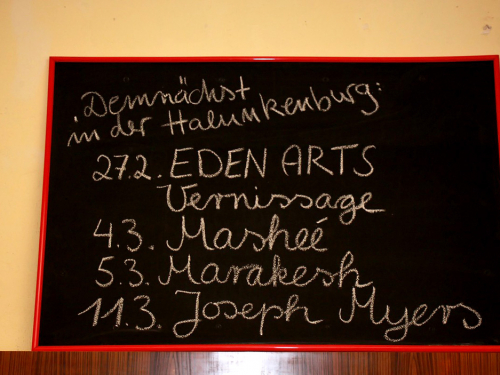 Demnächst
in der Halunkenburg:
27.2. EDEN ARTS
Vernissage
4.3. Masheé
5.3. Marakesh
11.3. Joseph Myers